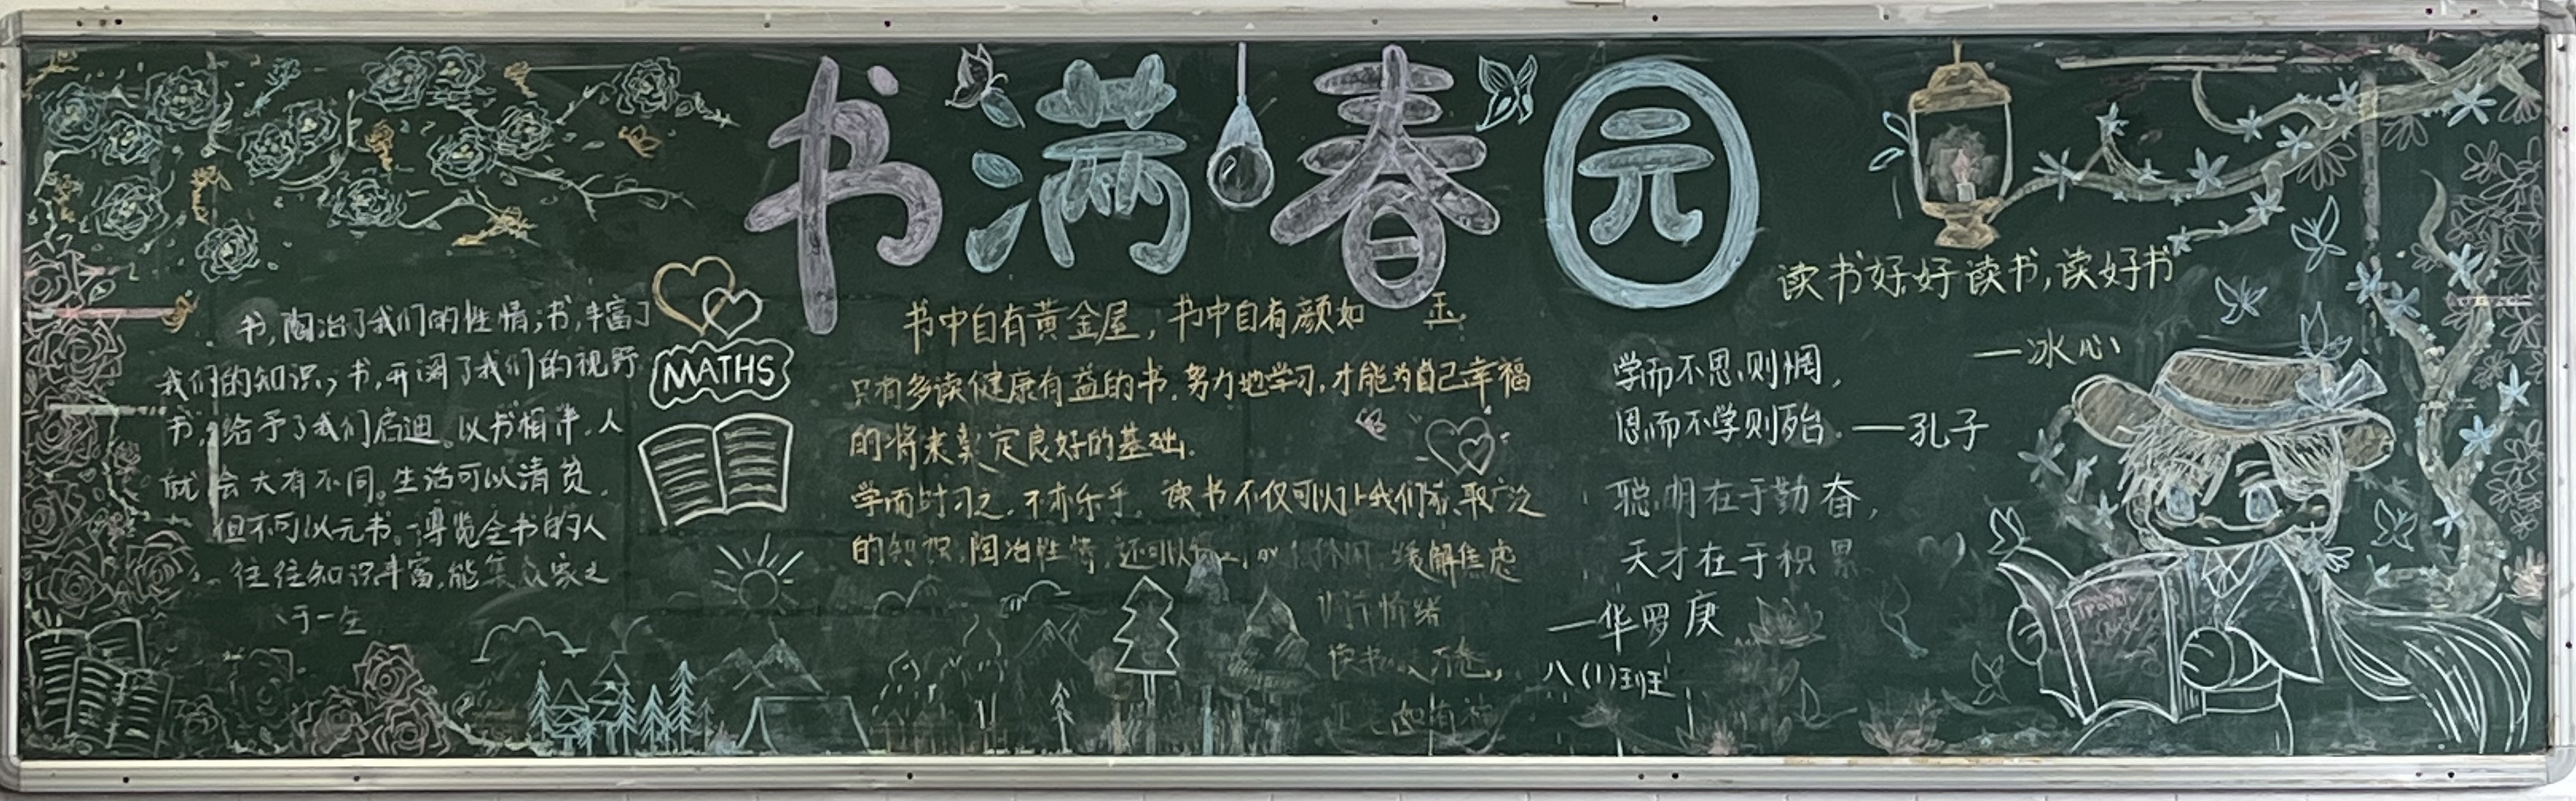 书满春园
书,陶冶了我们的性情;书,丰富了
我们的知识;书,开阔了我们的视野
书,给予了我们启迪。以书相伴,人
就会大有不同。生活可以清贫,
但不可以无书。博览全书的人
往往知识丰富,能集众家之
于一生
MATHS
书中自有黄金屋,书中自有颜如玉。
只有多读健康有益的书,努力地学习,才能为自己幸福
的将来奠定良好的基础.
学而时习之,不亦乐乎。读书不仅可以让我们获取广泛
的知识,陶冶性情,还可以 休闲,缓解焦虑
调节情绪
读书
读书好,好读书,读好书
—冰心
学而不思,则惘,
思而不学则殆.——孔子
聪明在于勤奋,
天才在于积累
—华罗庚
八(1)班
Travel